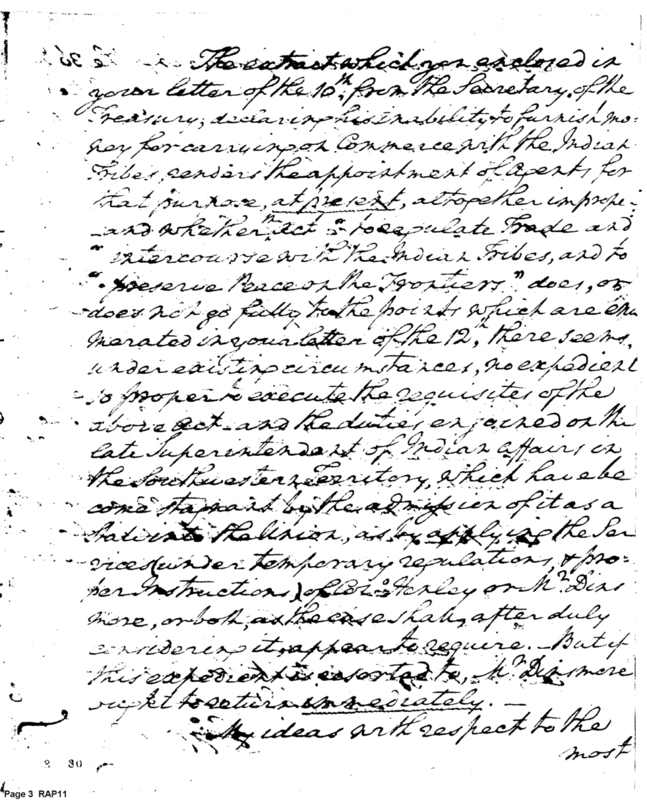 The extract which you enclosed in
your letter of the 10th. from the Secretary of the
Treasury, declaring his inability to furnish mo-
ney for carrying on Commerce with the Indian
Tribes, renders the appointment of Agents for
that purpose, at present, altogether improper
and whether ye. act "to regulate Trade and
"intercourse with the Indian Tribes, and to
"preserve Peace on the Frontiers" does, or
does not go fully to the points which are enu
merated in your letter of the 12th, there seems,
under existing circumstances, no expedient
so proper to execute the requisites of the
above act and the duties enjoined on the
late Superintendent of Indian affairs in
the Southwestern Territory, which have be
come stagnant by the admission of it as a
State into the Union, as by applying the Ser
vices (under temporary regulations, & pro-
per Instructions) of Colo. Henley or Mr. Dins
more, or both, as the case shall, after duly
considering it, appear to require. — But if
this expedient is resorted to, Mr. Dinsmore
ought to return immediately. —
My ideas with respect to the
most
2 30
Page 3 RAP11